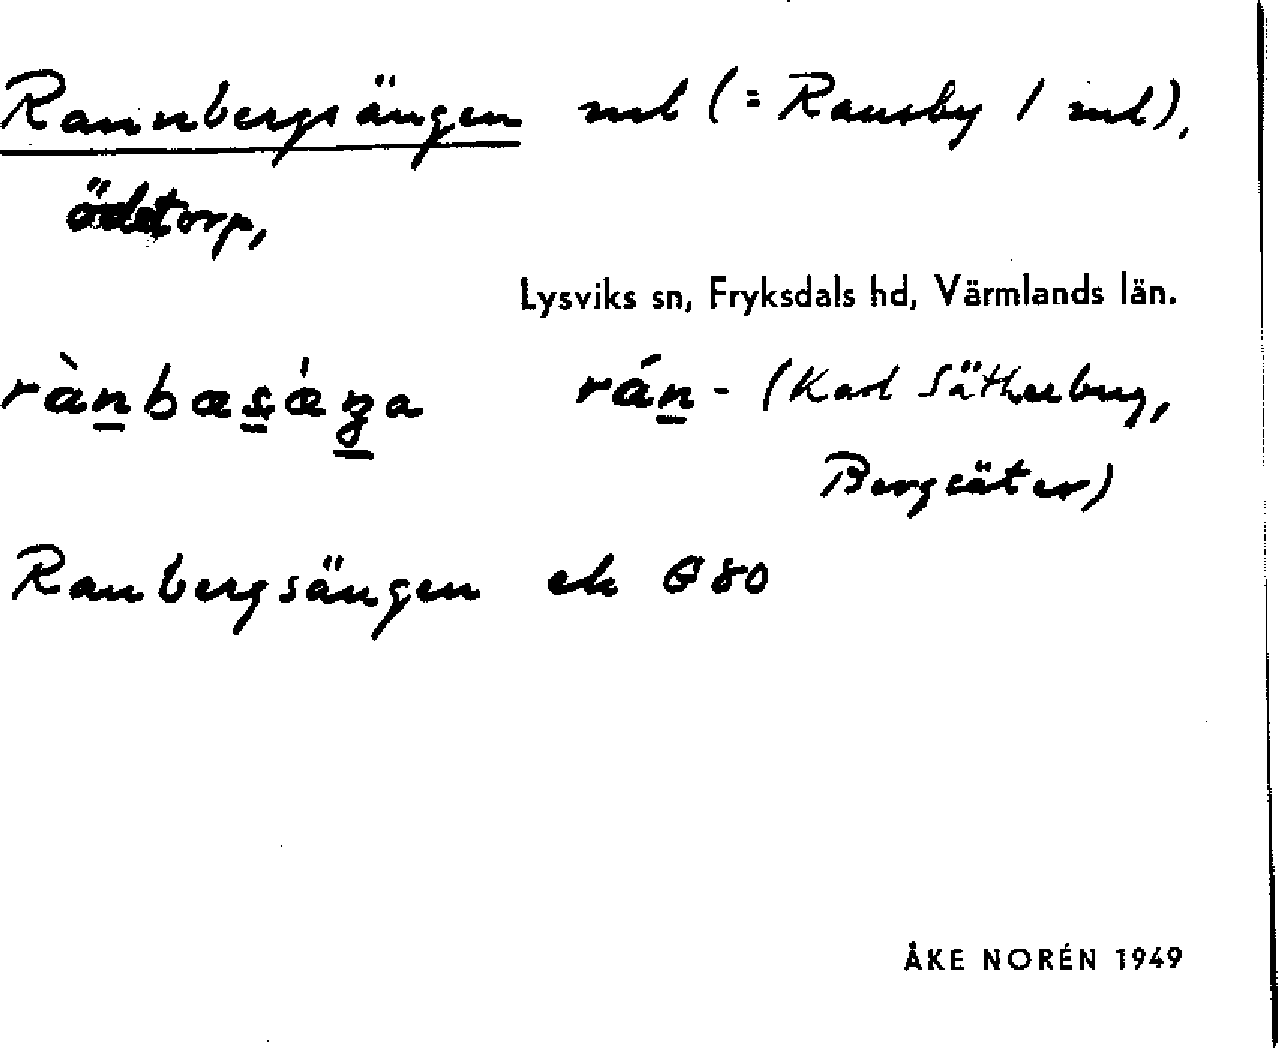 Rannbergsängen ml (= Ransby 1 ml),
ödetorp,
Lysviks sn, Fryksdals hd, Värmlands län.
rànbæsǽŋa rán- (Karl Sätherberg,
Bergsäter)
Ranbergsängen ek G 80
ÅKE NORÉN 1949